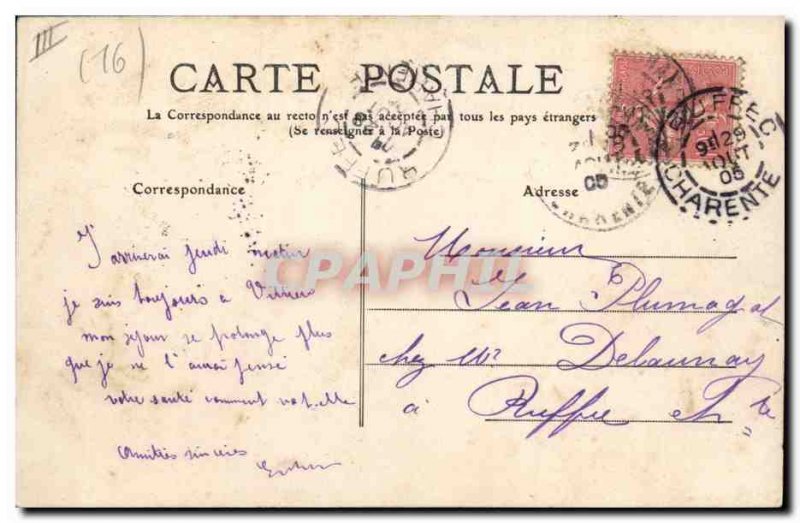 III
(16)
CARTE POSTALE
La Correspondance au recto n'est pas acceptée par tous les pays étrangers
(Se renseigner à la Poste)
Correspondance
Adresse
RUFFEC
9H 29
AOUT
05
CHARENTE
J'arriverai jeudi matin
je suis toujours à
mon séjour se prolonge plus
que je ne l'aurai pensé
votre santé comment va t-elle
Amitiés sincères
Monsieur
Jean
chez Mr Delaunay
à Ruffec Ch te
CPAPHIL